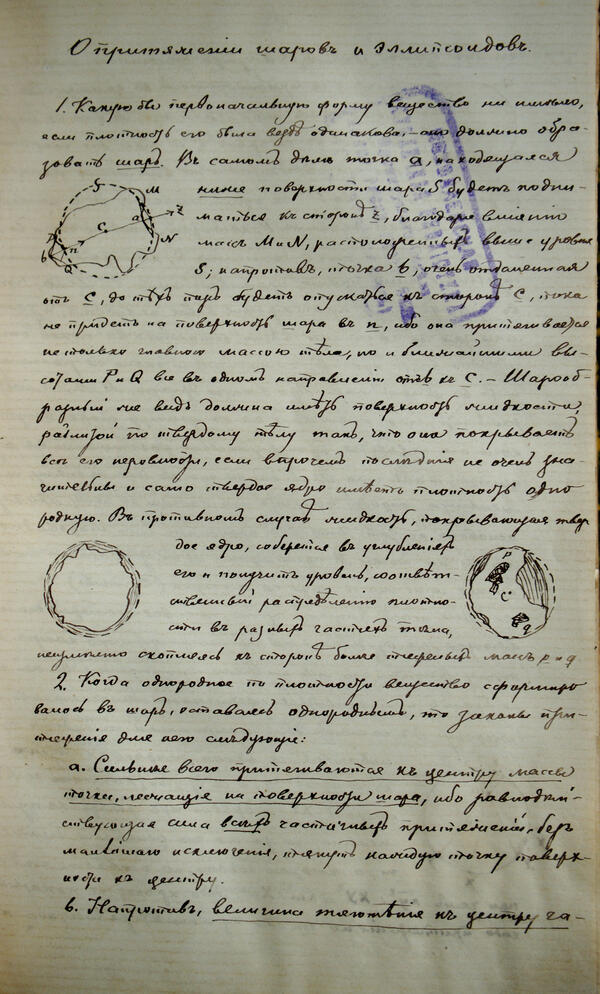 О притяженiи шаровъ и эллипсоидовъ.
1. Какую бы первоначальную форму вещество ни имѣло,
если плотность его была вездѣ одинакова, – оно должно обра-
зовать шаръ. Въ самомъ дѣлѣ точка a, находящаяся
ниже поверхности шара S будетъ подни-
маться къ сторонѣ z, благодаря влiянiю
массъ M и N, расположенныхъ выше уровня
S; напротивъ, точка b, очень отдаленная
отъ C, до тѣхъ поръ будетъ опускаться къ сторонѣ C, пока
не придетъ на поверхность шара въ n, ибо она притягивается
не только главною массою тѣла, но и ближайшими вы-
сотами P и Q все въ одномъ направленiи къ C. – Шарооб-
разный же видъ должна имѣть поверхность жидкости,
разлитой по твердому тѣлу такъ, что она покрываетъ
всѣ его неровности, если впрочемъ послѣднiя не очень зна-
чительны и само твердое ядро имѣетъ плотность одно
родную. Въ противномъ случаѣ жидкость, покрывающая твер
дое ядро, соберется въ углубленiяхъ
его и получитъ уровень, соотвѣт-
ственный распредѣленiю плотно-
сти въ разныхъ частяхъ тѣла,
неизмѣнно скопляясь къ сторонѣ более тяжелыхъ массъ p и q
2. Когда однородное по плотности вещество сформиро
валось въ шаръ, оставаясь однороднымъ, то законы при-
тяженiя для него слѣдующiе:
a. Сильнѣе всего притягиваются къ центру массы
точки, лежащiя на поверхности шара, ибо равнодѣй-
ствующая сила всѣхъ частичныхъ притяженiй, безъ
малѣйшаго исключенiя, тянутъ каждую точку поверх-
ности къ центру.
b. Напротивъ, величина тяготѣнiя къ центру ча-
S
M
C
a
z
N
b
n
Q
P
C
q